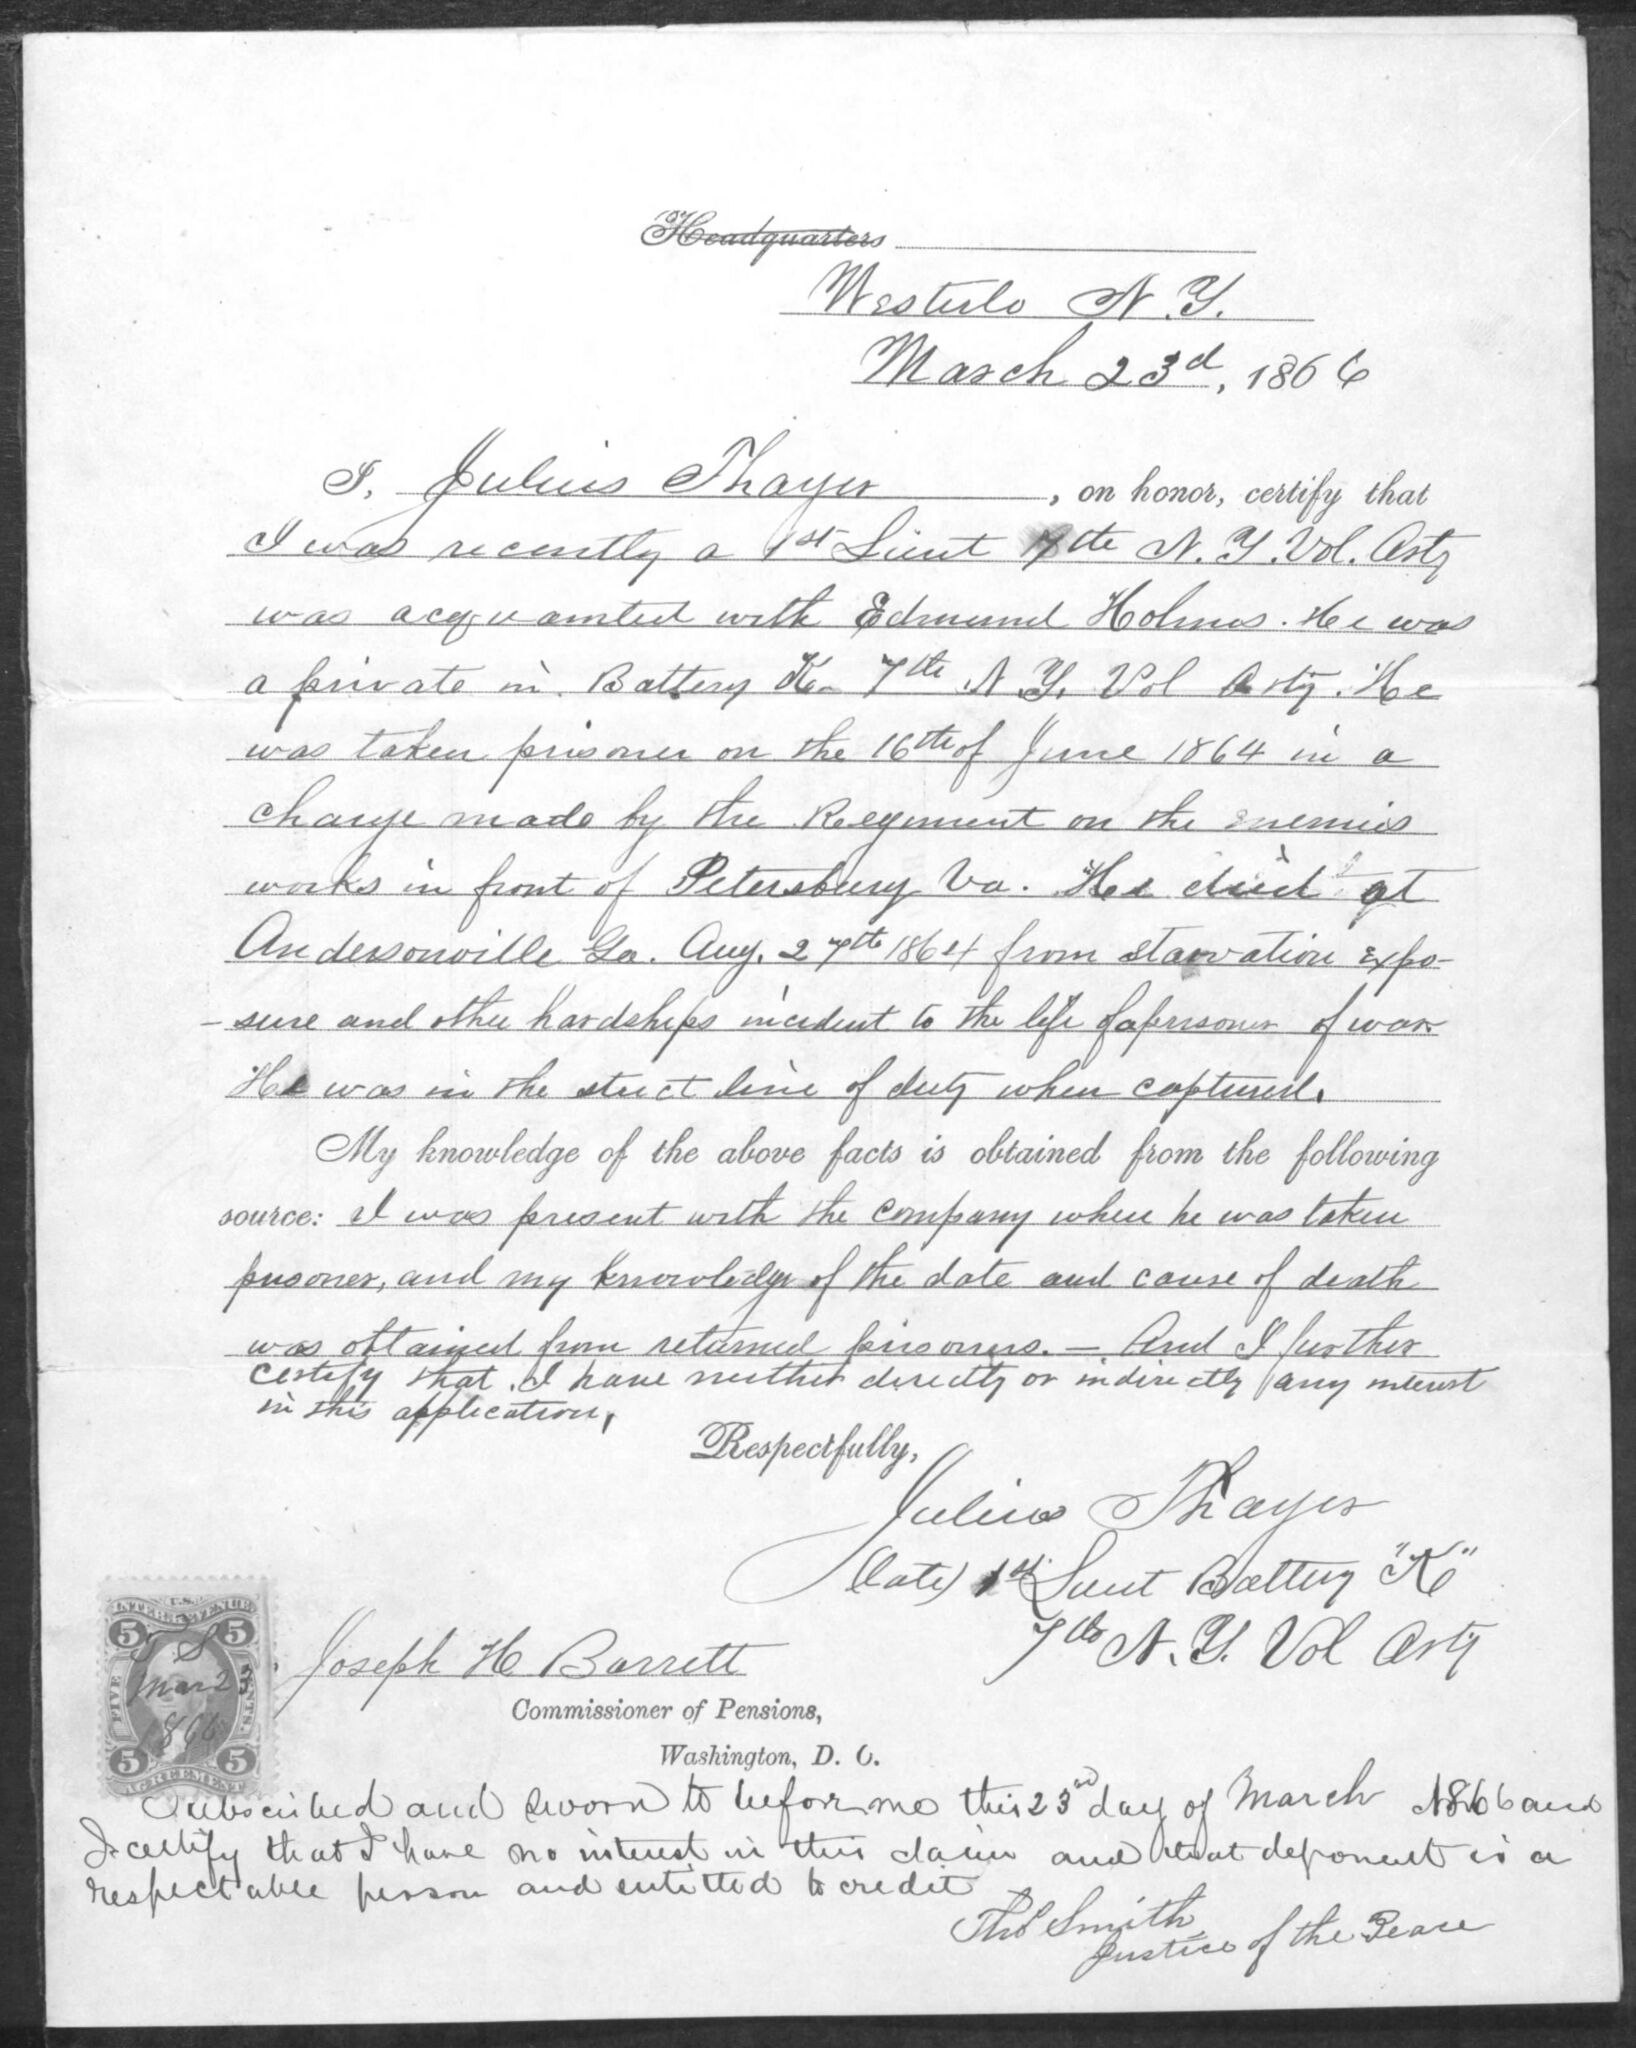 Headquarters
Westerlo N.Y.
March 23d, 1866
I, Julius Thayer, on honor, certify that
I was recently a 1st Lieut 7th N.Y. Vol. Arty
was acquainted with Edmund Holmes. He was
a private in Battery K. 7th N.Y. Vol Arty. He
was taken prisoner on the 16th of June 1864 in a
charge made by the Regiment on the enemies
works in front of Petersburg Va. He died at
Andersonville Ga. Aug. 27th 1864 from starvation expo-
-sure and other hardships incident to the life of a prisoner of war
He was in the strict line of duty when captured.
My knowledge of the above facts is obtained from the following
source: I was present with the company when he was taken
prisoner, and my knowledge of the date and cause of death
was obtained from returned prisoners. — And I further
certify that I have neither directly or indirectly any interest
in this application,
Respectfully,
Julius Thayer
(late) 1st Lieut Battery "K"
7th N.Y. Vol Arty
U.S.
INTER. REVENUE
5 5
FIVE CENTS.
T S
Mar 23
1866
5 5
AGREEMENT
Joseph H Barrett
Commissioner of Pensions,
Washington, D. C.
Subscribed and sworn to before me this 23rd day of March 1866 and
I certify that I have no interest in this claim and that deponent is a
respectable person and entitled to credit
Thos Smith
Justice of the Peace